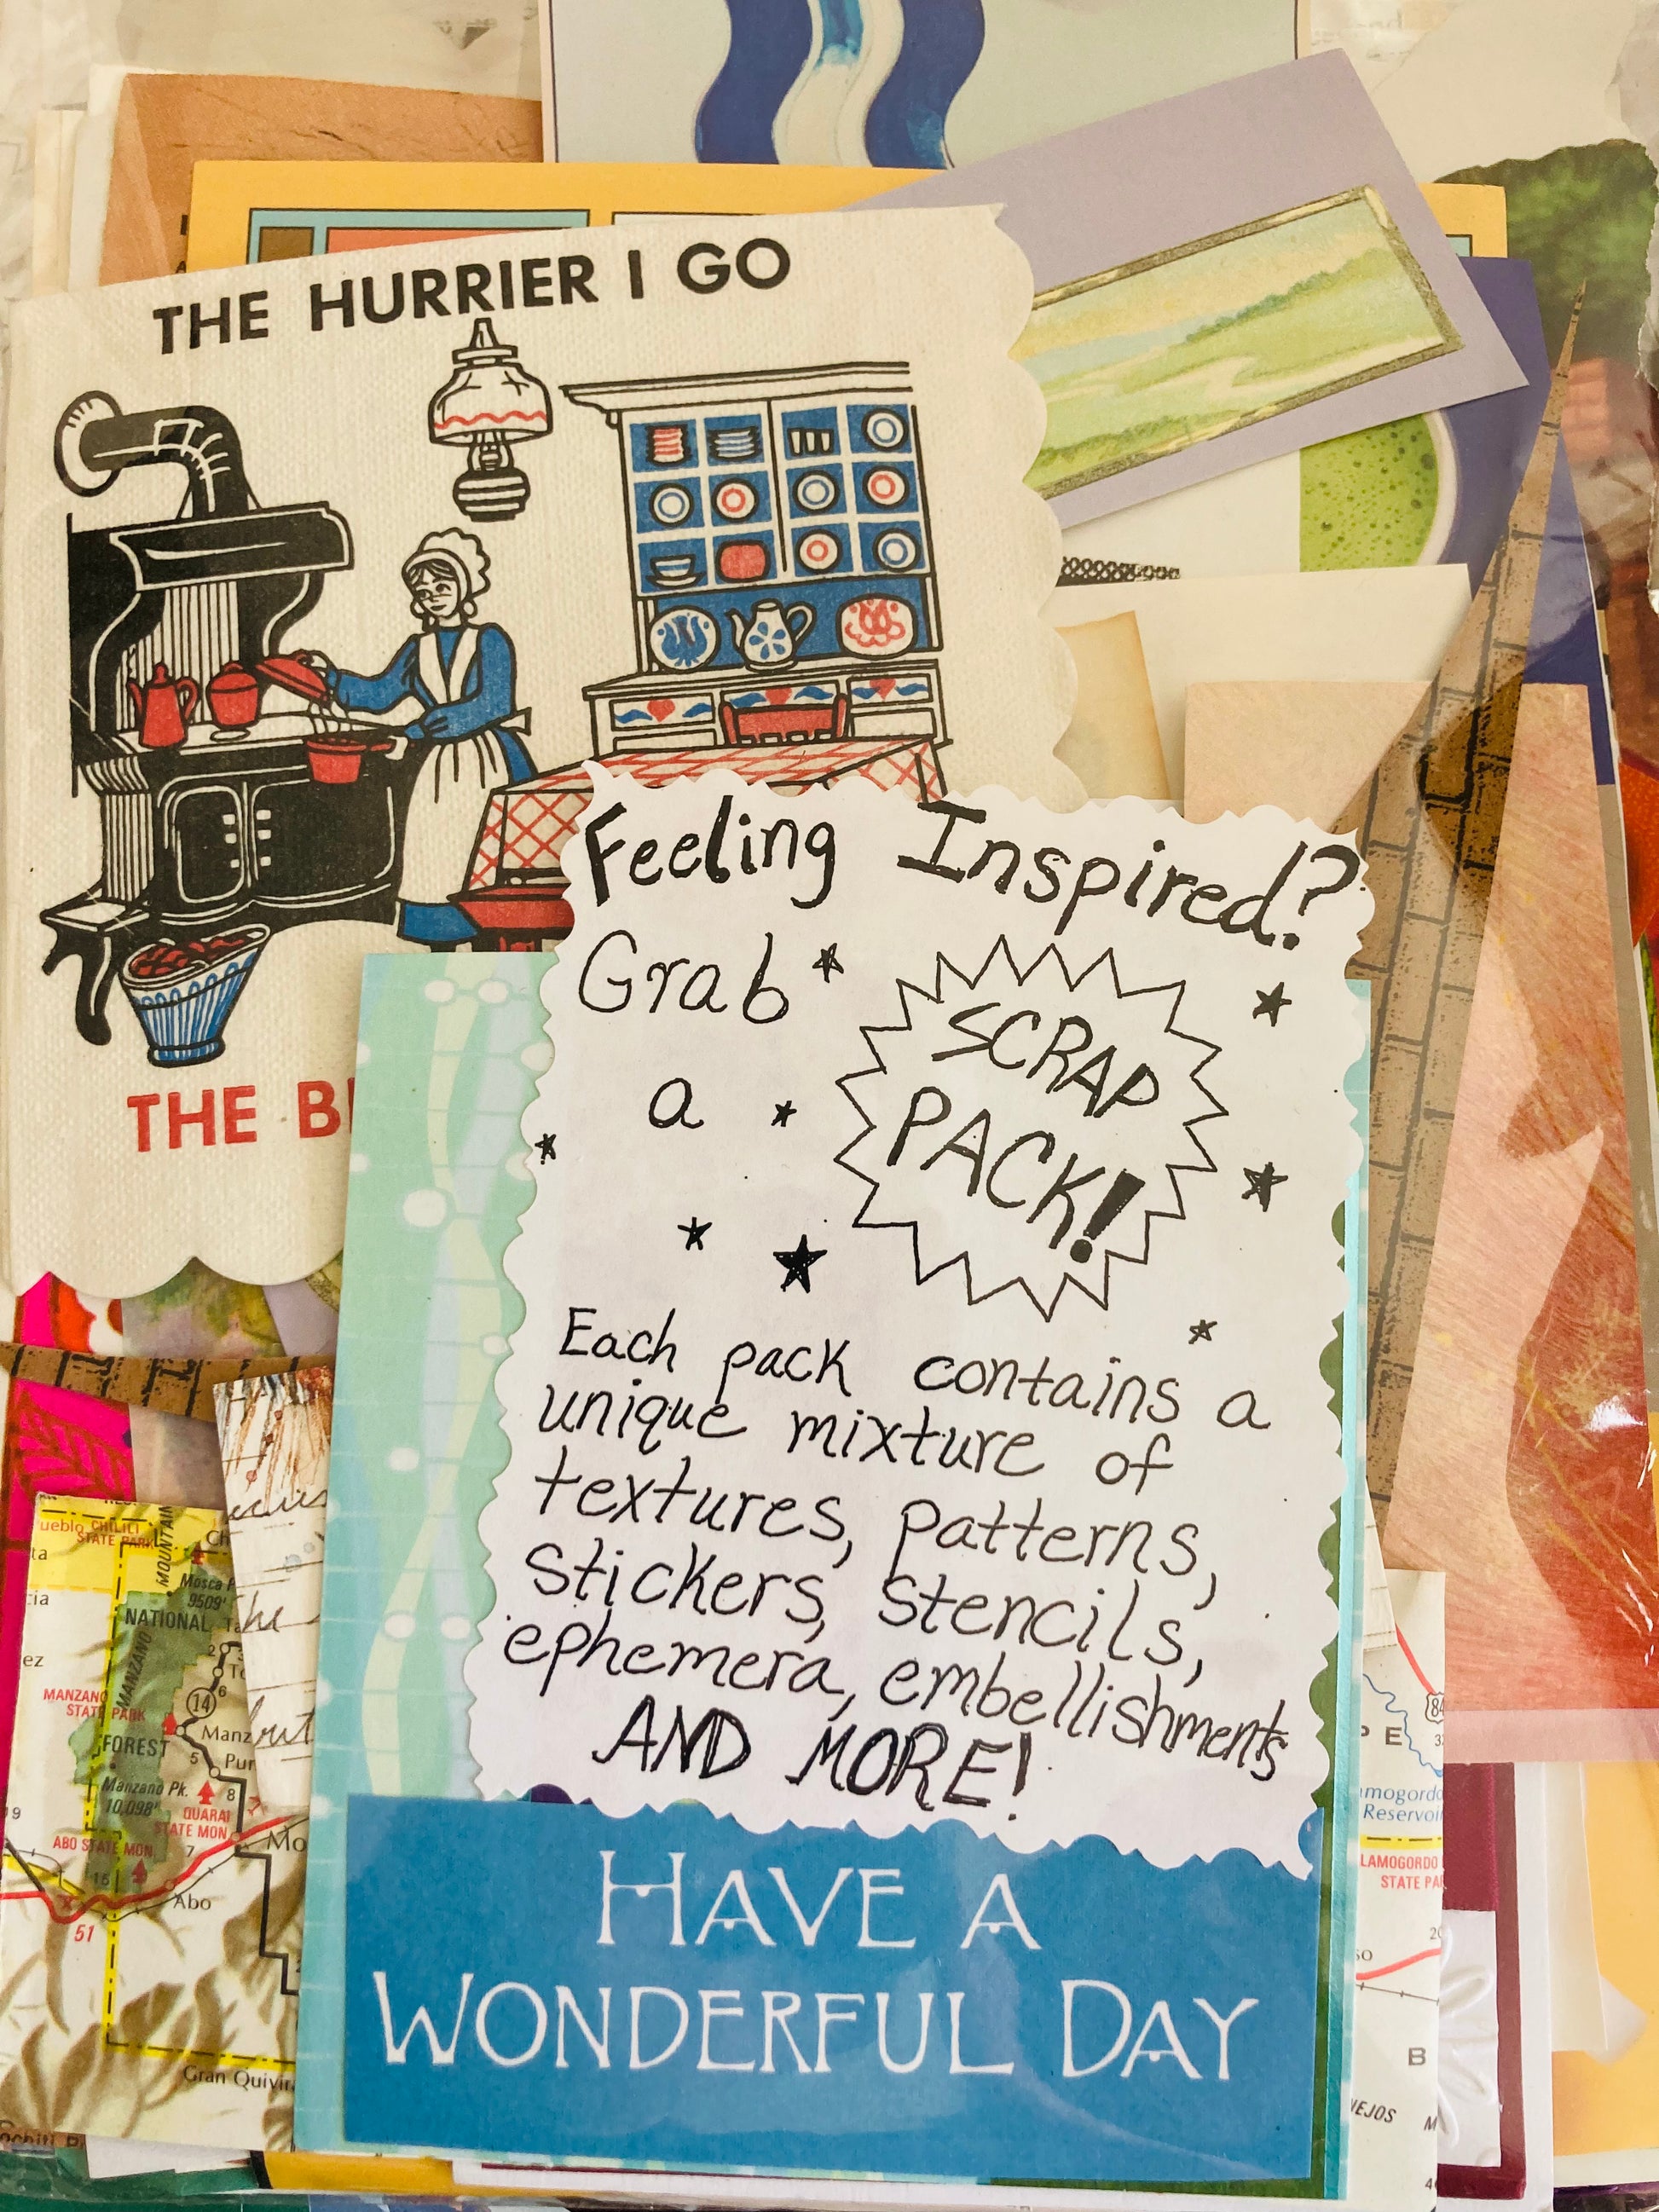 THE HURRIER I GO
THE
Feeling Inspired?
Grab
a
SCRAP
PACK!
Each pack contains a
unique mixture of
textures, patterns,
stickers, stencils,
ephemera, embellishments
AND MORE!
HAVE A
WONDERFUL DAY
CHILILI
STATE PARK
MOUNTAIN
Mosca
9509'
NATIONAL
MANZANO
MANZANO
STATE PARK
14
6
FOREST
5
Manzano Pk.
10,098'
8
QUARAI
STATE MON
ABO STATE MON
7
15
Abo
51
Gran
the
but
84
Reservoir
STATE
B